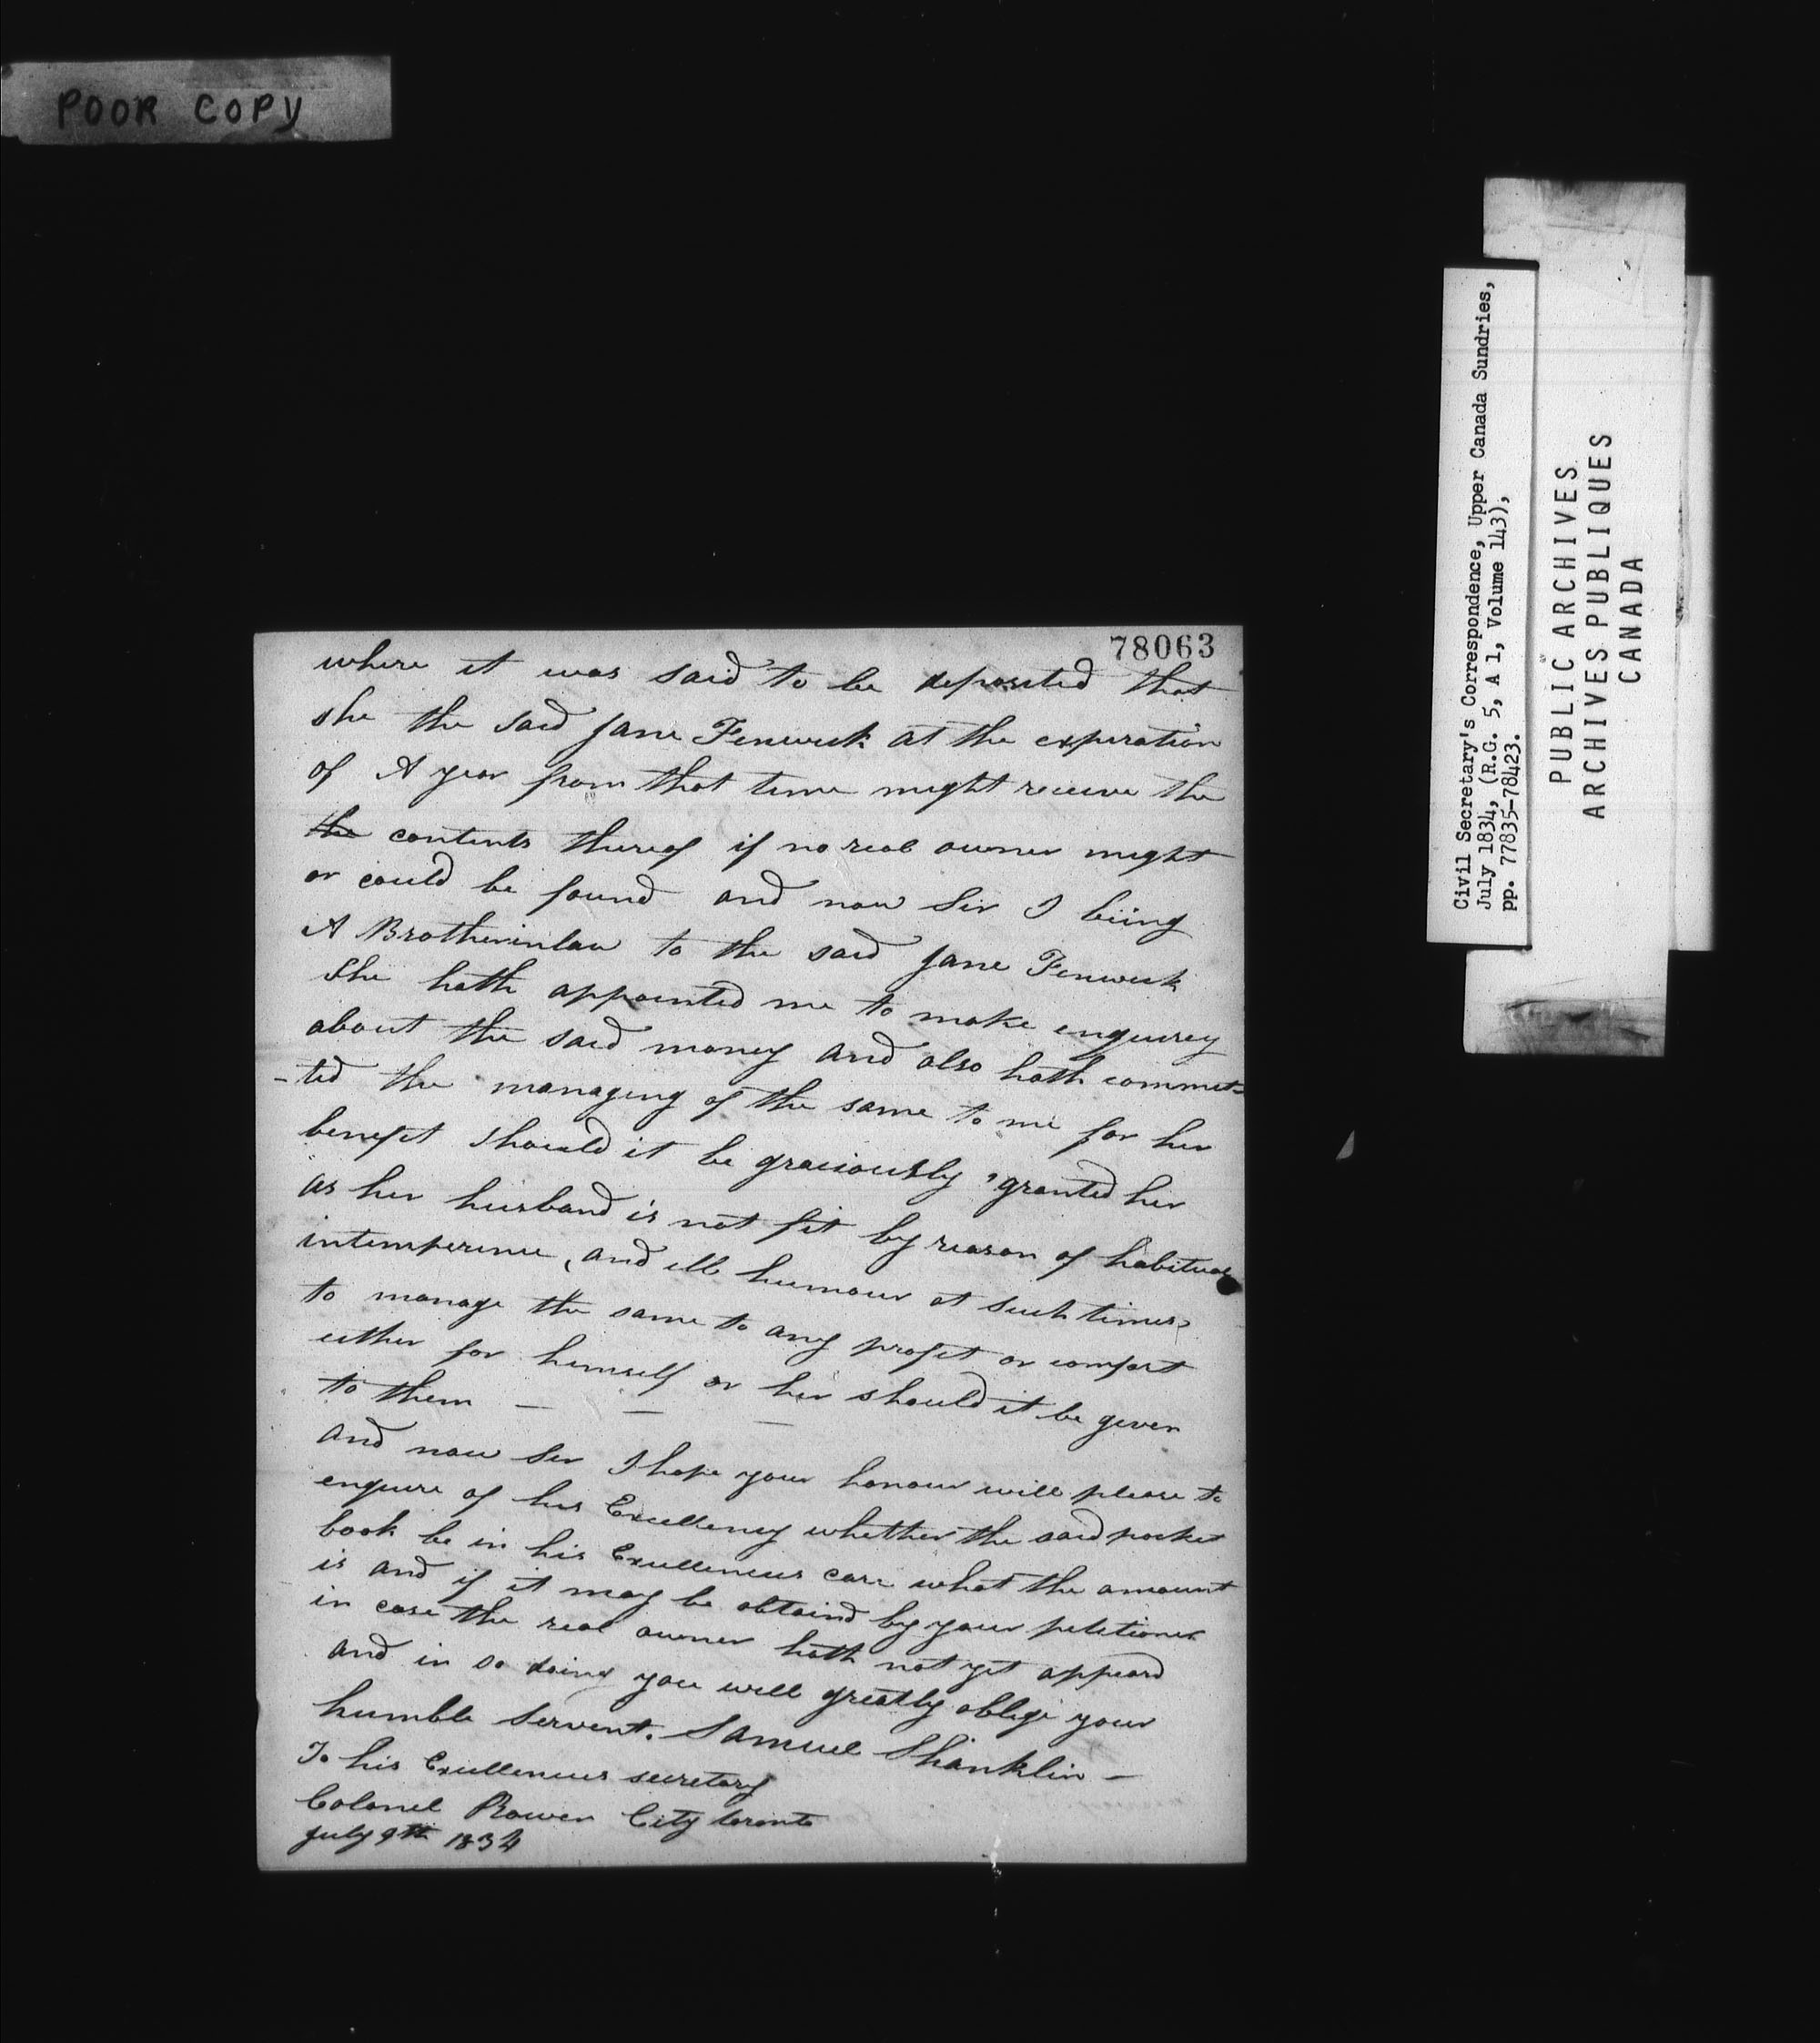 POOR COPY
78063
where it was said to be deposited that
she the said Jane Fenwick at the experation
of A year from that time might receive the
the contents thereof if no real owner might
or could be found and now Sir I biing
A Brotherinlaw to the said Jane Fenwick
She hath appointed me to make enquirey
about the said money and also hath commit-
-ted the managing of the same to me for her
benefit should it be graciously granted her
as her husband is not fit by reason of habitual
intemperence, and ill humour at such times
to manage the same to any profit or comfort
either for himself or her should it be given
to them — — —
and now Sir I hope your honour will please to
enquire of his Excellency whether the said pocket
book be in his Excellences care what the amount
is and if it may be obtaind by your petitioner
in case the real owner hath not yet appeard
and in so doing you will greatly oblige your
humble servent. Samuel Shanklin —
To his Excellences secretary
Colonel Rowen City toronto
July 9th 1834
Civil Secretary's Correspondence, Upper Canada Sundries,
July 1834, (R.G. 5, A 1, Volume 143),
pp. 77835-78423.
PUBLIC ARCHIVES
ARCHIVES PUBLIQUES
CANADA